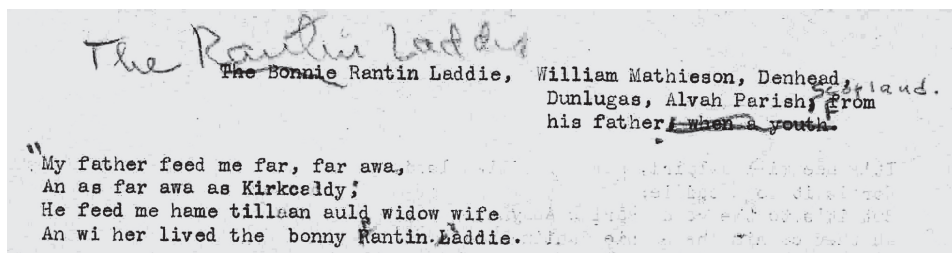 The Rantin Laddie
The Bonnie Rantin Laddie, William Mathieson, Denhead,
Dunlugas, Alvah Parish, Scotland. from
his father, when a youth.
"My father feed me far, far awa,
An as far awa as Kirkcaldy;
He feed me hame tillaan auld widow wife
An wi her lived the bonny Rantin.Laddie.